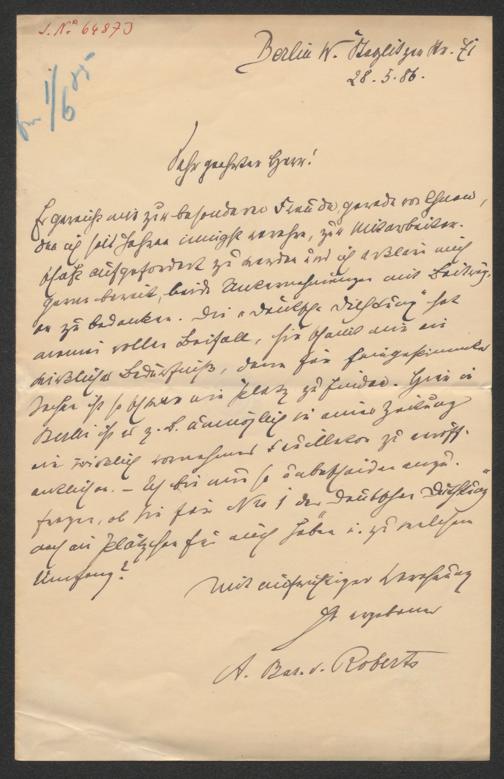 J. No 64873
Berlin W. Steglitzer Str. 71
28.5.86.
1/6 85
Sehr geehrter Herr!
Es gereicht mir zur besonderen Freude, gerade von Ihnen,
den ich seit Jahren innigst verehre, zur Mitarbeiter-
schaft aufgefordert zu werden und ich erkläre mich
gerne bereit, beide Unternehmungen mit Beiträg-
en zu bedenken. Die "Deutsche Dichtung" hat
meinen vollen Beifall, sie scheint mir ein
wirkliches Bedürfniß, denn für feingestimmte
Sachen ist so schwer ein Platz zu finden. Hier in
Berlin ist es z. B. unmöglich in einer Zeitung
ein wirklich vornehmes Feuilleton zu veröff-
entlichen. – Ich bin nun so unbescheiden anzu-
fragen, ob Sie für Nro 1 der "Deutschen Dichtung"
noch ein Plätzchen für mich haben u. zu welchem
Umfang?
Mit aufrichtiger Verehrung
Ihr ergebener
A. Bar. v. Roberts